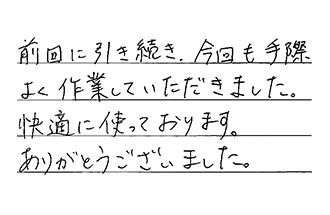 前回に引き続き、今回も手際
よく作業していただきました。
快適に使っております。
ありがとうございました。